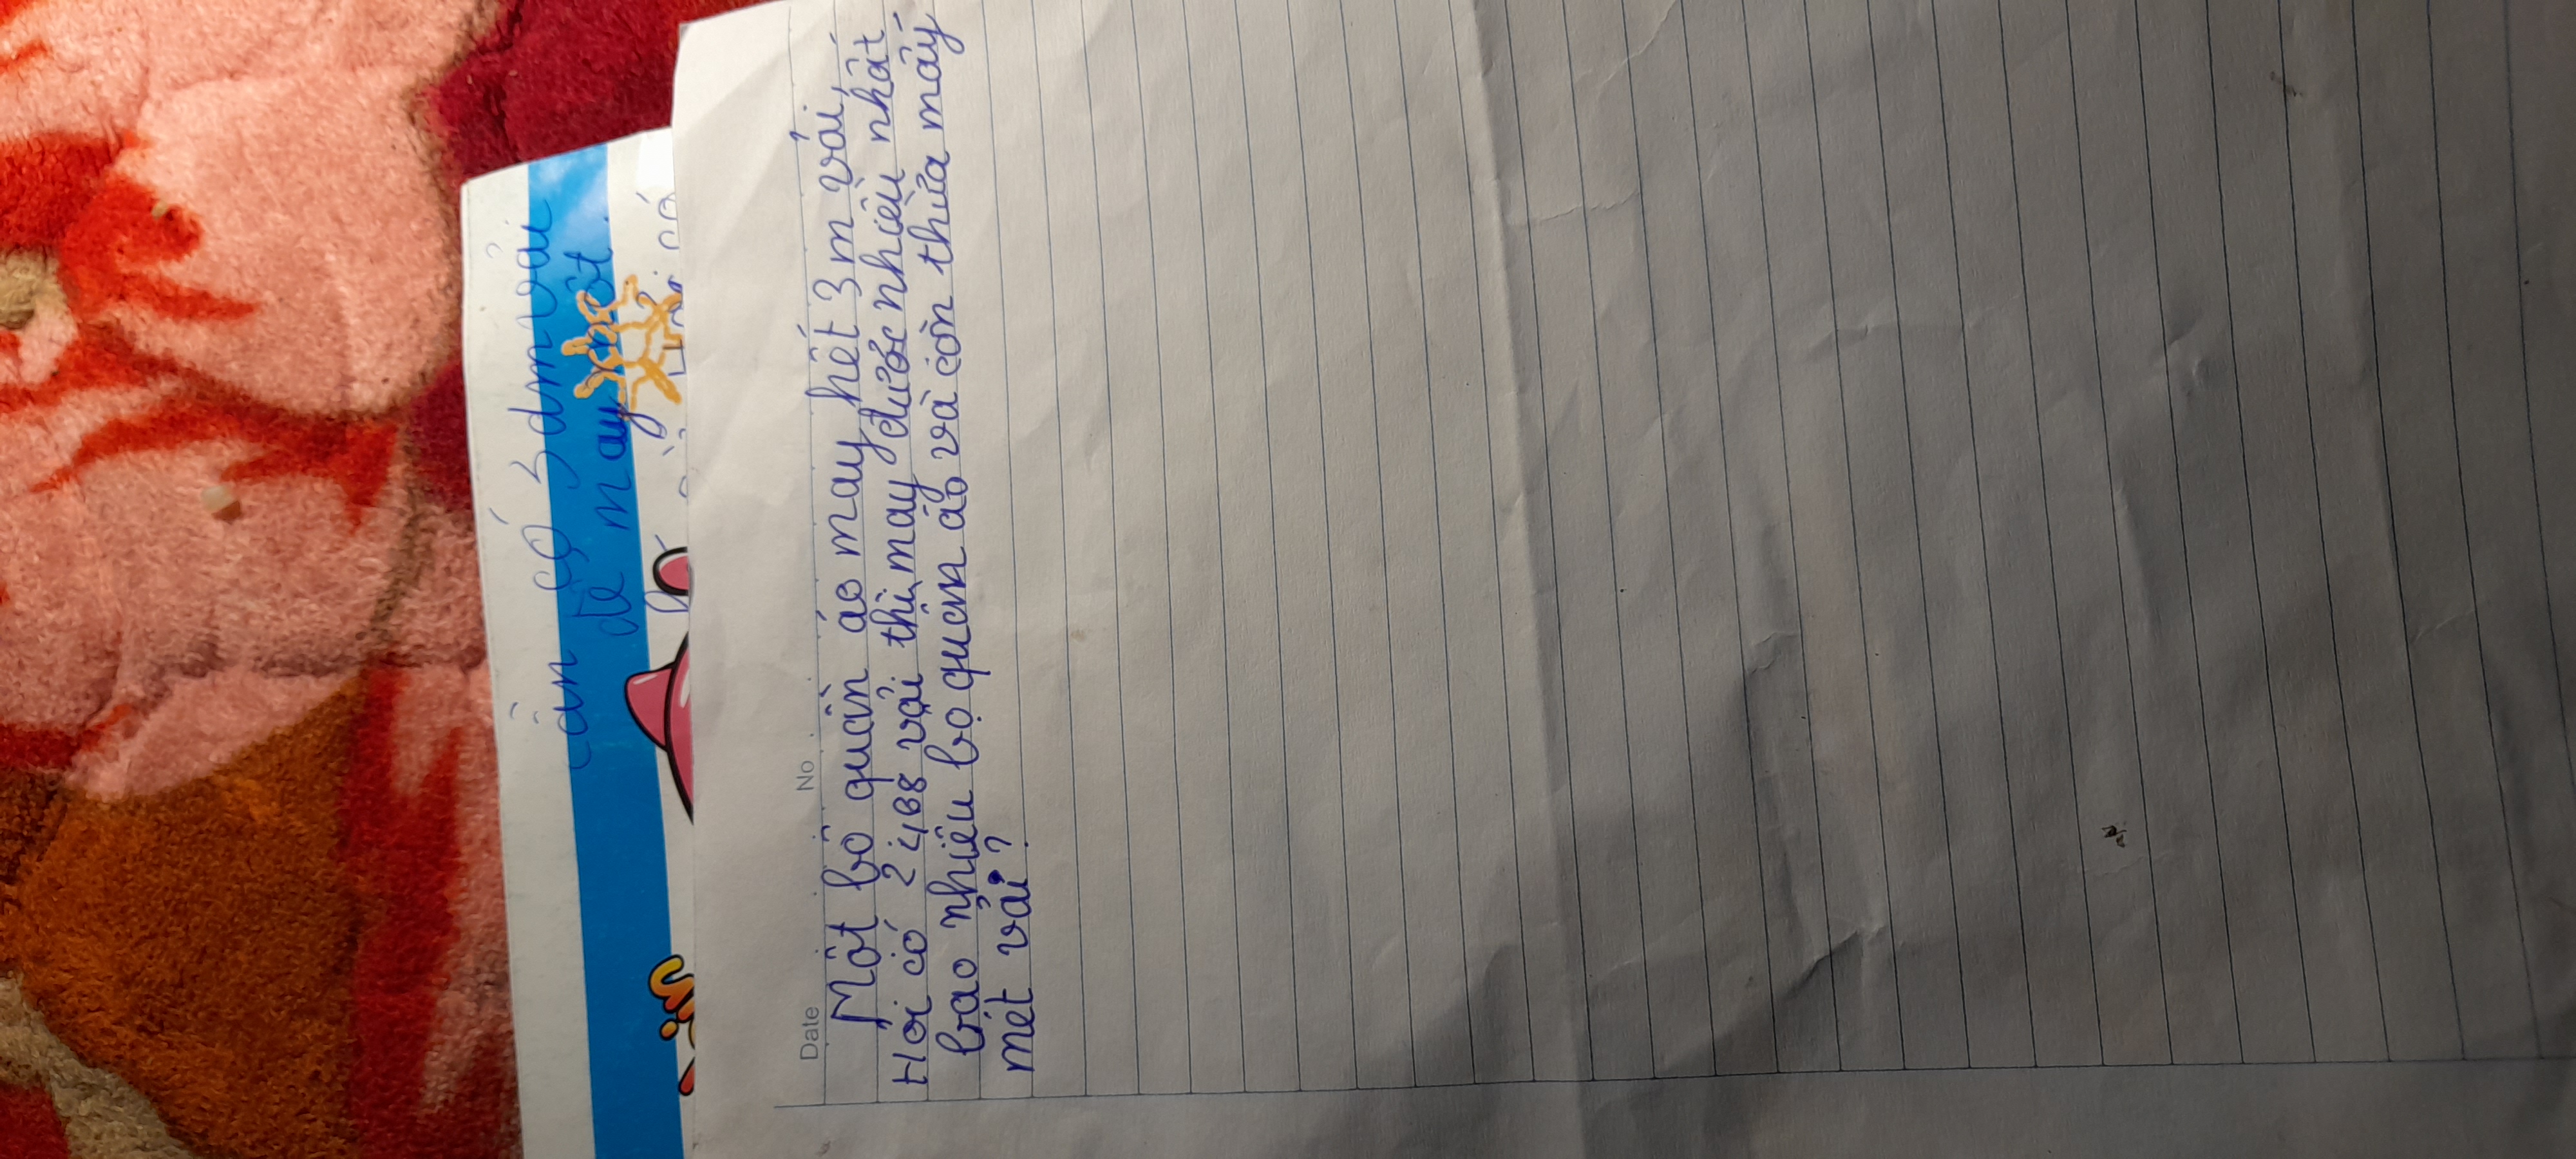 cần có 3dm vải
để may một
Date No
Một bộ quần áo may hết 3m vải,
Hỏi có 2468 vải thì may được nhiều nhất
bao nhiêu bộ quần áo và còn thừa mấy
mét vải?